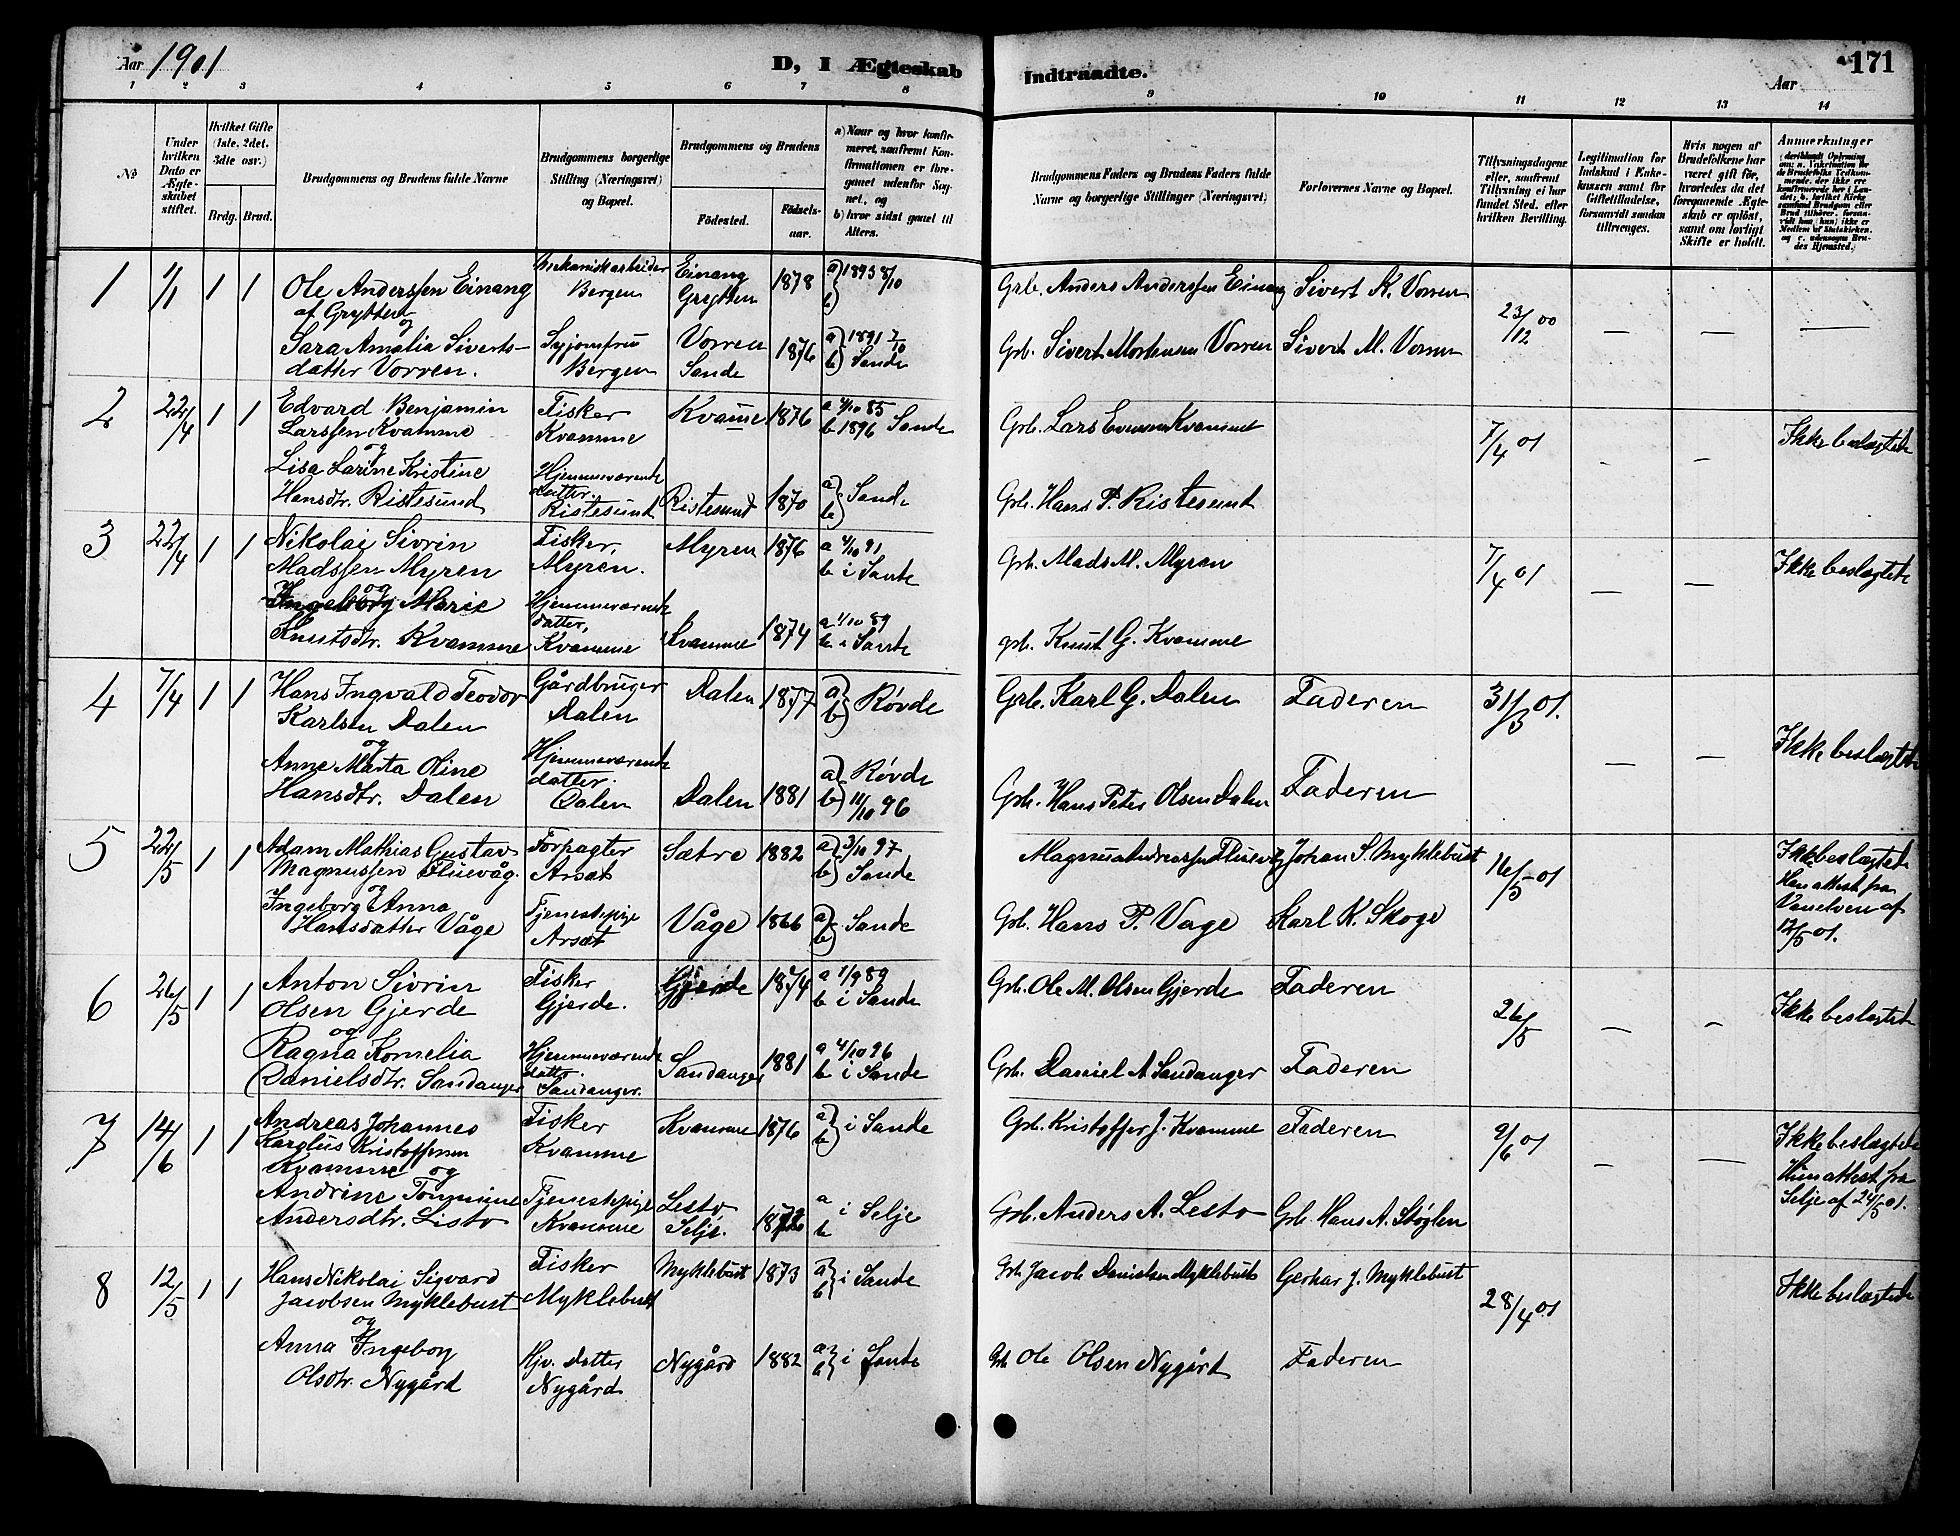 Aar 1901
D, I Ægteskab
Indtraadte.
Aar
171
1 2 3 4 5 6 7 8 9 10 11 12 13 14
No
Under hvilken Dato er Ægteskabet stiftet.
Hvilket Gifte (1ste, 2det, 3die osv.)
Brdg. Brud.
Brudgommens og Brudens fulde Navne
Brudgommens borgerlige Stilling (Næringsvei) og Bopæl.
Brudgommens og Brudens
Fødested. Fødselsaar.
a) Naar og hvor konfirmeret, saafremt Konfirmationen er foregaaet udenfor Sognet, og
b) hvor sidst gaaet til Alters.
Brudgommens Faders og Brudens Faders fulde Navne og borgerlige Stillinger (Næringsvei)
Forlovernes Navne og Bopæl.
Tillysningsdagene eller, saafremt Tillysning ei har fundet Sted, efter hvilken Bevilling.
Legitimation for Indskud i Enkekassen samt for Giftetilladelse, forsaavidt saadan tiltrænges.
Hvis nogen af Brudefolkene har været gift før, hvorledes da det foregaaende Ægteskab er opløst, samt om lovligt Skifte er holdt.
Anmerkninger
1 1/1 1 1 Ole Anderssen Einang
af Grytten
og
Sara Amalia Siverts-
datter Vorren.
Mekanisk arbeider
Bergen
Syjomfru
Bergen
Einang
Grytten
Vorren
Sande
1878
1876
a) 1893 8/10
b)
a) 1891 2/10
b) Sande
Grb. Anders Anderssen Einang
Grb. Sivert Mortensen Vorren
Sivert K. Vorren
Sivert M. Vorren
23/12 00
— — —
2 22/4 1 1 Edvard Benjamin
Larssen Kvamme
og
Lisa Larine Kristine
Hansdtr. Ristesund
Fisker
Kvamme
Hjemmeværende
datter.
Ristesund
Kvamme
Ristesund
1876
1870
a 4/10 85
b 1896 Sande
a) Sande
b)
Grb. Lars Evensen Kvamme
Grb. Hans P. Ristesund
7/4 01
- -
Ikke beslægtede
3 22/4 1 1 Nikolai Sivrin
Madssen Myren
og
Ingeborg Marie
Knutsdtr. Kvamme
Fisker,
Myren.
Hjemmeværende
datter,
Kvamme
Myren
Kvamme
1876
1874
a 4/10 91
b i Sande
a 1/10 89
b i Sande
Grb. Mads M. Myren
grb. Knut G. Kvamme
7/4 01
— —
Ikke beslægtede
4 7/4 1 1 Hans Ingvald Teodor
Karlsen Dalen
og
Anne Marta Oline
Hansdtr. Dalen
Gårdbruger
Dalen
Hjemmeværende
datter.
Dalen
Dalen
Dalen
1877
1881
a) Røvde
b)
a) Røvde
b) 11/10 96
Grb. Karl G. Dalen
Grb. Hans Peter Olsen Dalen
Faderen
Faderen
31/3 01.
— —
Ikke beslægtede
5 22/5 1 1 Adam Mathias Gustav
Magnussen Fluevåg.
og
Ingeborg Anna
Hansdatter Våge
Forpagter
Arsæt
Tjenestepige
Arsæt
Sætre
Våge
1882
1866
a) 3/10 97
b) Sande
a) Sande
b)
Magnus Andreassen Fluevåg
Grb. Hans P. Vage
Johan S. Myklebust
Karl K. Skoge
16/5 01
Ikke beslægtede
Han attest fra
Vanelven af
12/5 01.
6 26/5 1 1 Anton Sivrin
Olsen Gjerde
og
Ragna Kornelia
Danielsdtr. Sandanger
Fisker
Gjerde.
Hjemmeværende
datter.
Sandanger.
Gjerde
Sandanger
1874
1881
a 1/9 89
b i Sande
a 4/10 96
b i Sande
Grb. Ole M. Olsen Gjerde
Grb. Daniel A Sandanger
Faderen
Faderen
26/5
— -
Ikke beslægtede
7 14/6 1 1 Andreas Johannes
Kristoffersen
Kvamme og
Andrine Tomine
Andersdtr. Listo
Fisker
Kvamme
Tjenestepige
Kvamme
Kvamme
Lesto
Selje.
1876
a) i Sande
b)
a i Selje
b
Grb. Kristoffer J. Kvamme
Grb. Anders A. Lesto
Faderen
Grb. Hans A. Støylen
9/6 01
- —
Ikke beslægtede
Hun attest fra
Selje af 24/5 01.
8 12/5 1 1 Hans Nikolai Sigvard
Jacobsen Myklebust
og
Anna Ingeborg
Olsdtr. Nygård
Fisker
Myklebust
Hjv. Datter
Nygård
Myklebust
Nygård
1873
1882
a) i Sande
b)
a) i Sande
Grb Jacob Danielsen Myklebust
Grb Ole Olsen Nygård
Gerhar J. Myklebust
Faderen
28/4 01
Ikke beslægtede